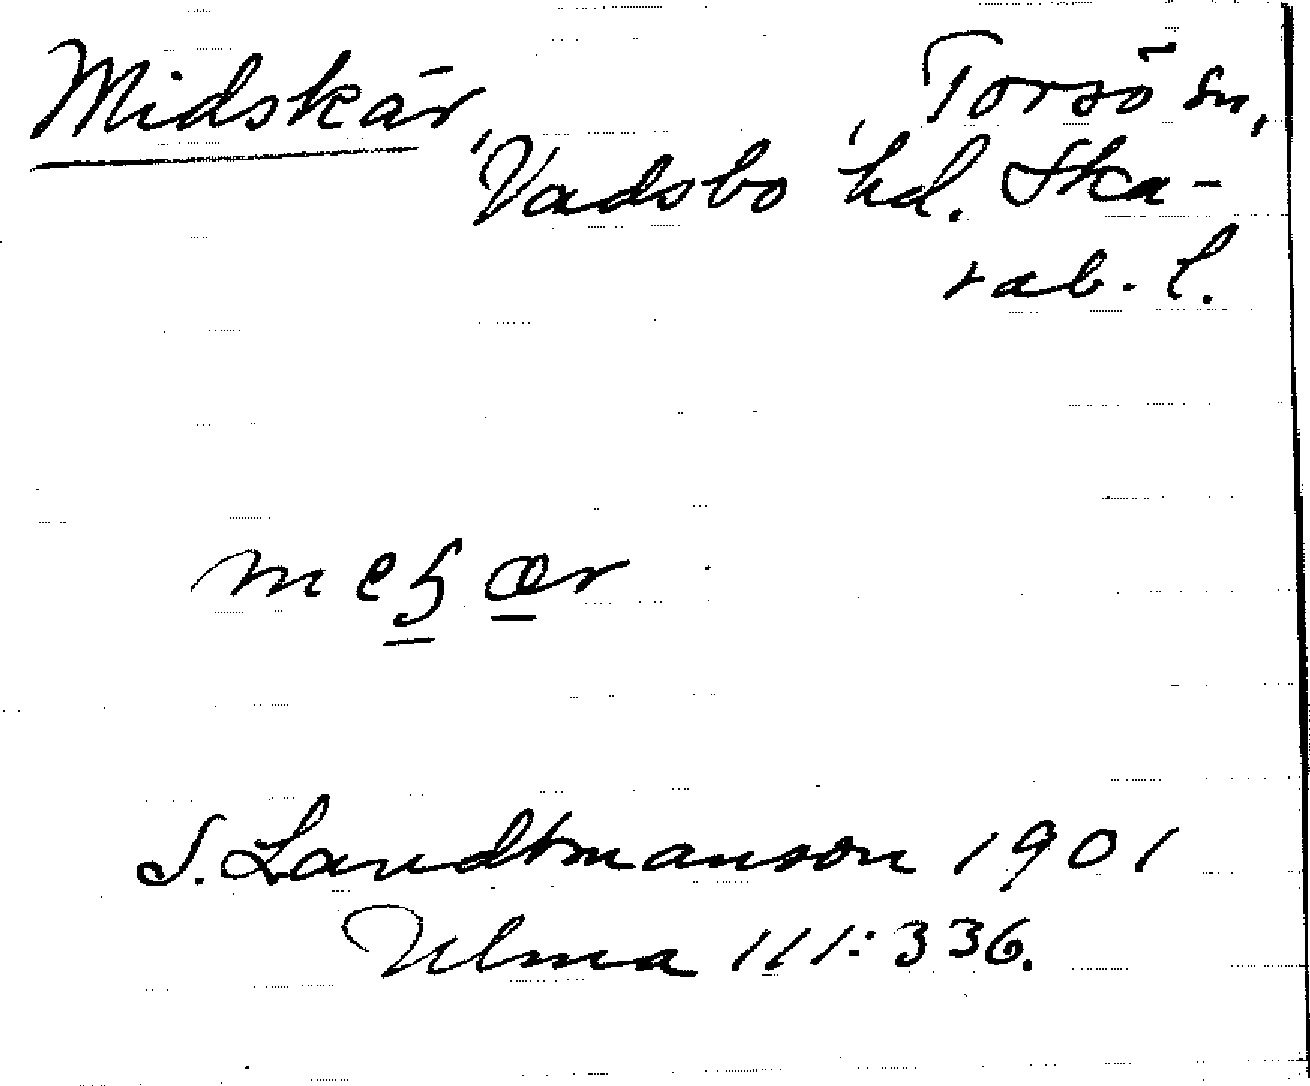 Midskär Torsö sn,
Vadsbo hd. Ska-
rab. l.
S. Landtmanson 1901
Ulma 111:336.